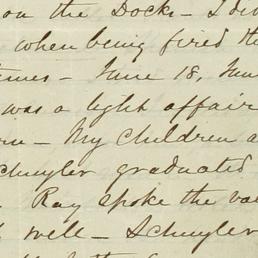 on the Dock - I di
when being fired th
times - June 18, Jun
was a light affair
- My Children a
chuyler graduated
Ray spoke the va
well - Schuyler